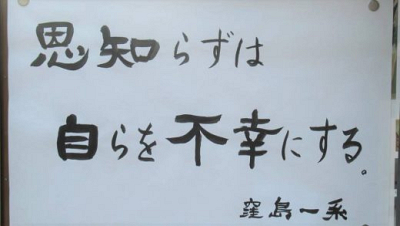 恩知らずは
自らを不幸にする。
窪島一系